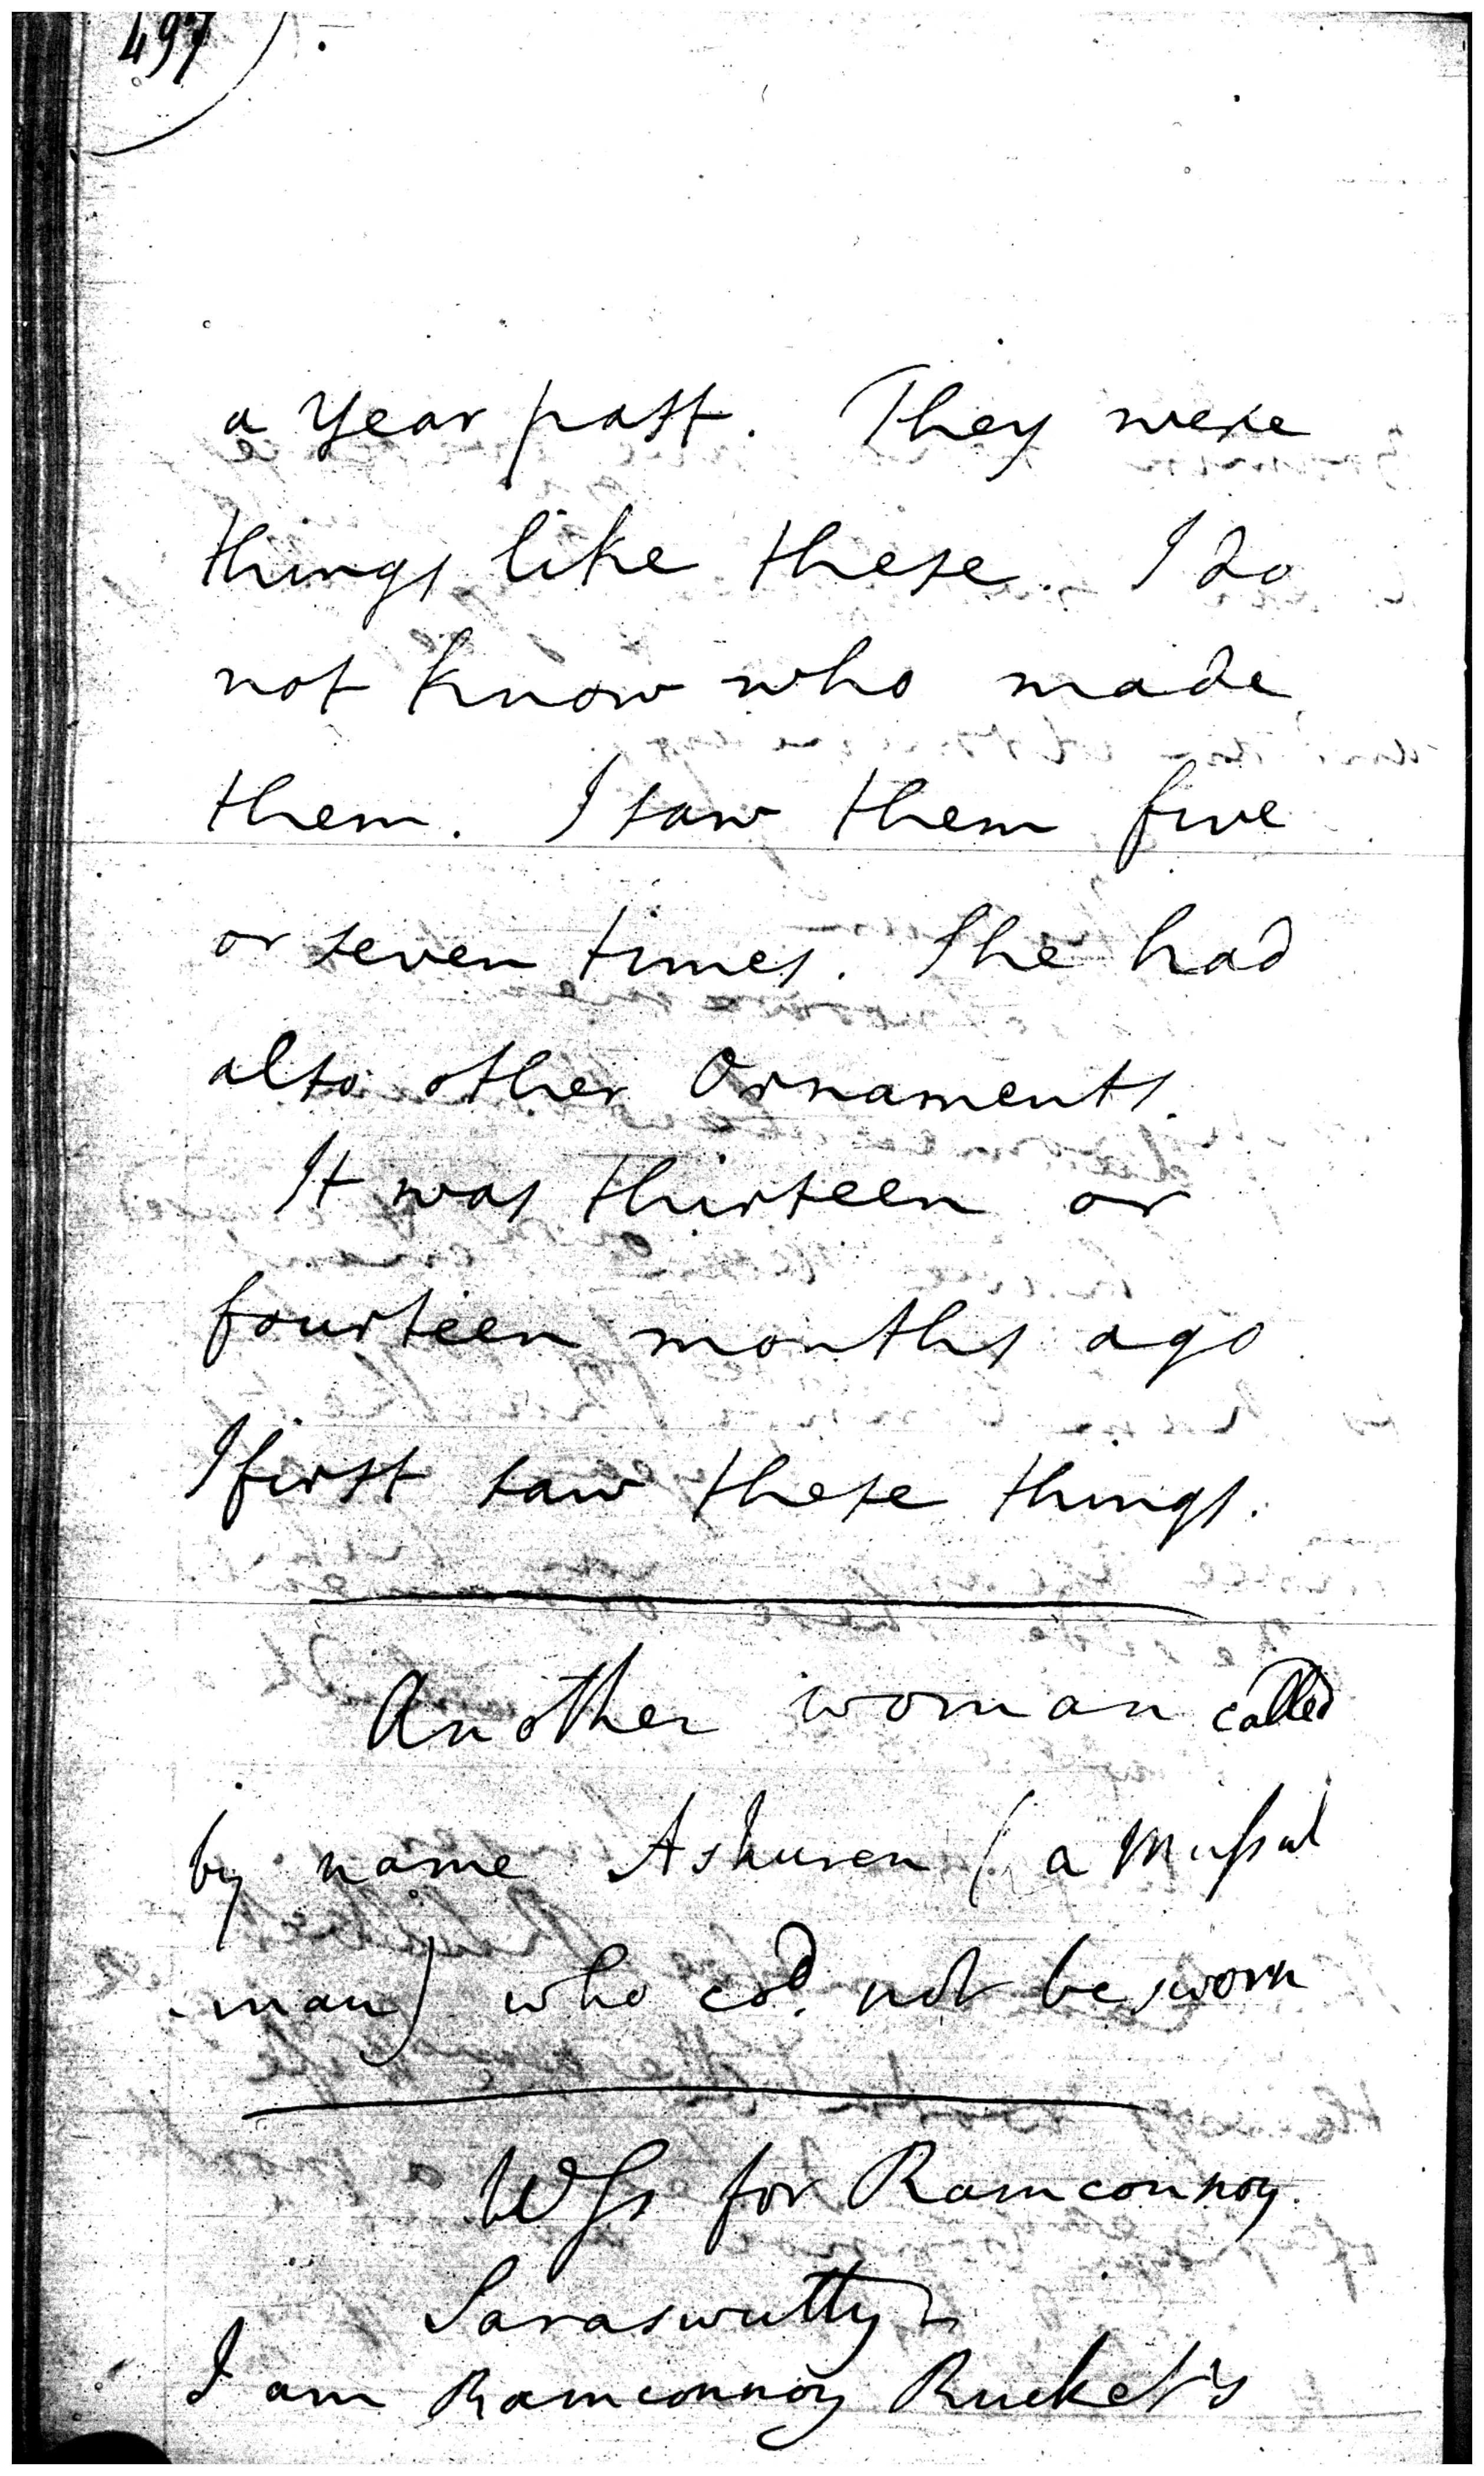 497
a Year past. They were
things like these. I do
not know who made
them. I saw them five
or seven times. She had
also other Ornaments.
It was thirteen or
fourteen months ago
I first saw these things.
Another woman called
by name Ashuren (a Mussul
-man) who cod. not be sworn
for Ramconnoy
Saraswutty
I am Ramconnoy Rucket's